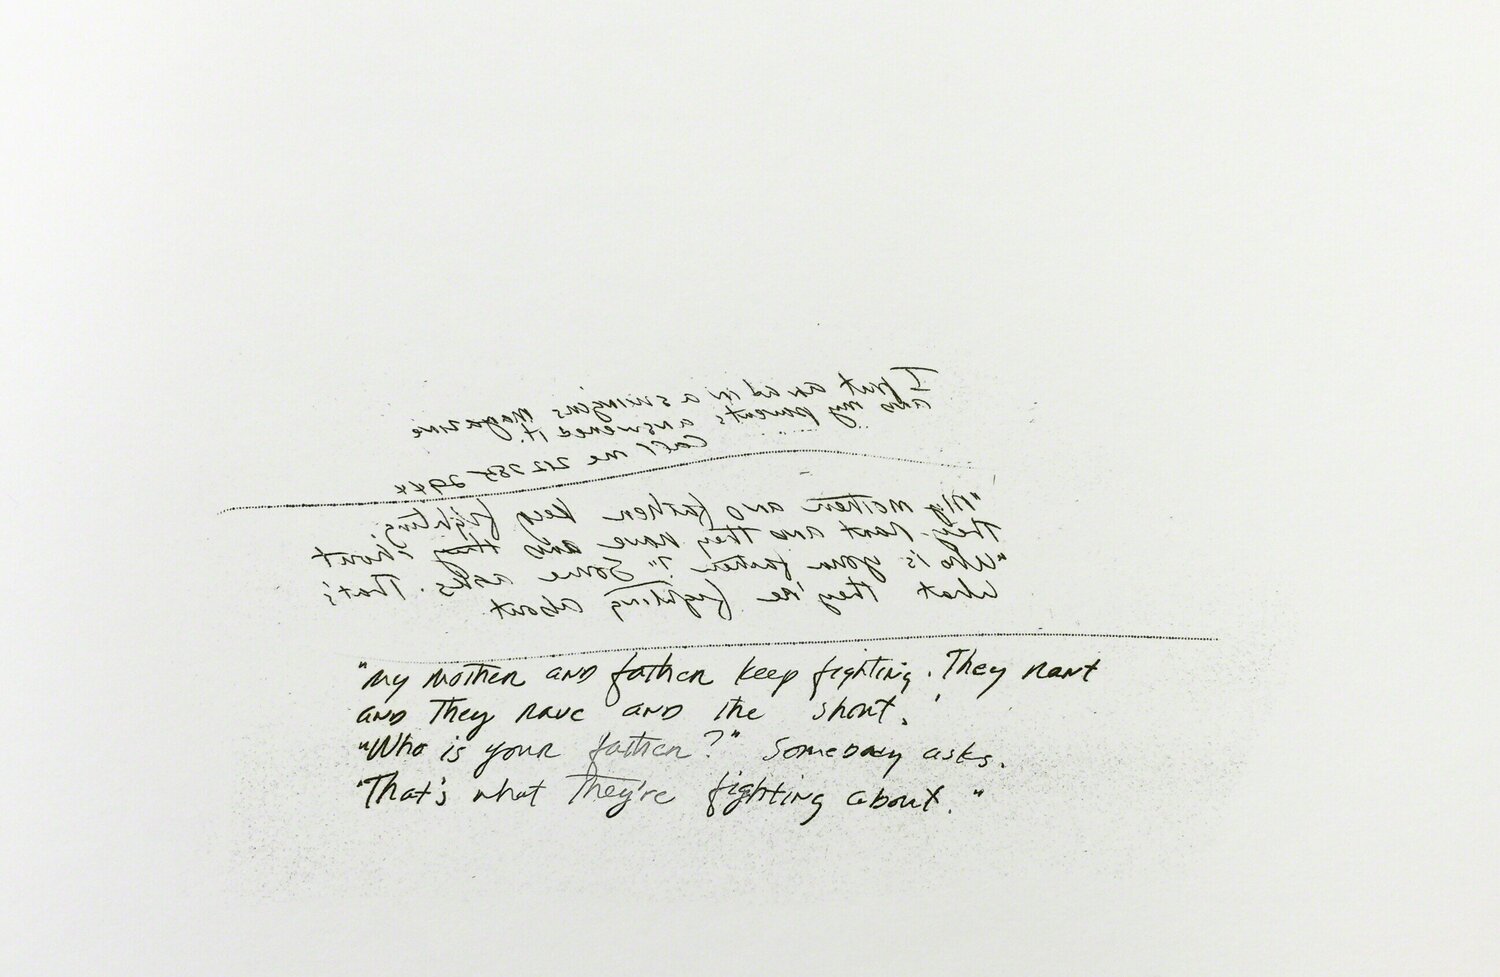 I put an ad in a swingers magazine
and my parents answered it.
Call me 212 785 29xx
"My mother and father keep fighting.
They rant and they rave and they shout
"Who is your father?" Some asks. That's
what they're fighting about
"My mother and father keep fighting. They rant
and They rave and the shout.'
"Who is your father?" Somebody asks.
'That's what They're fighting about."